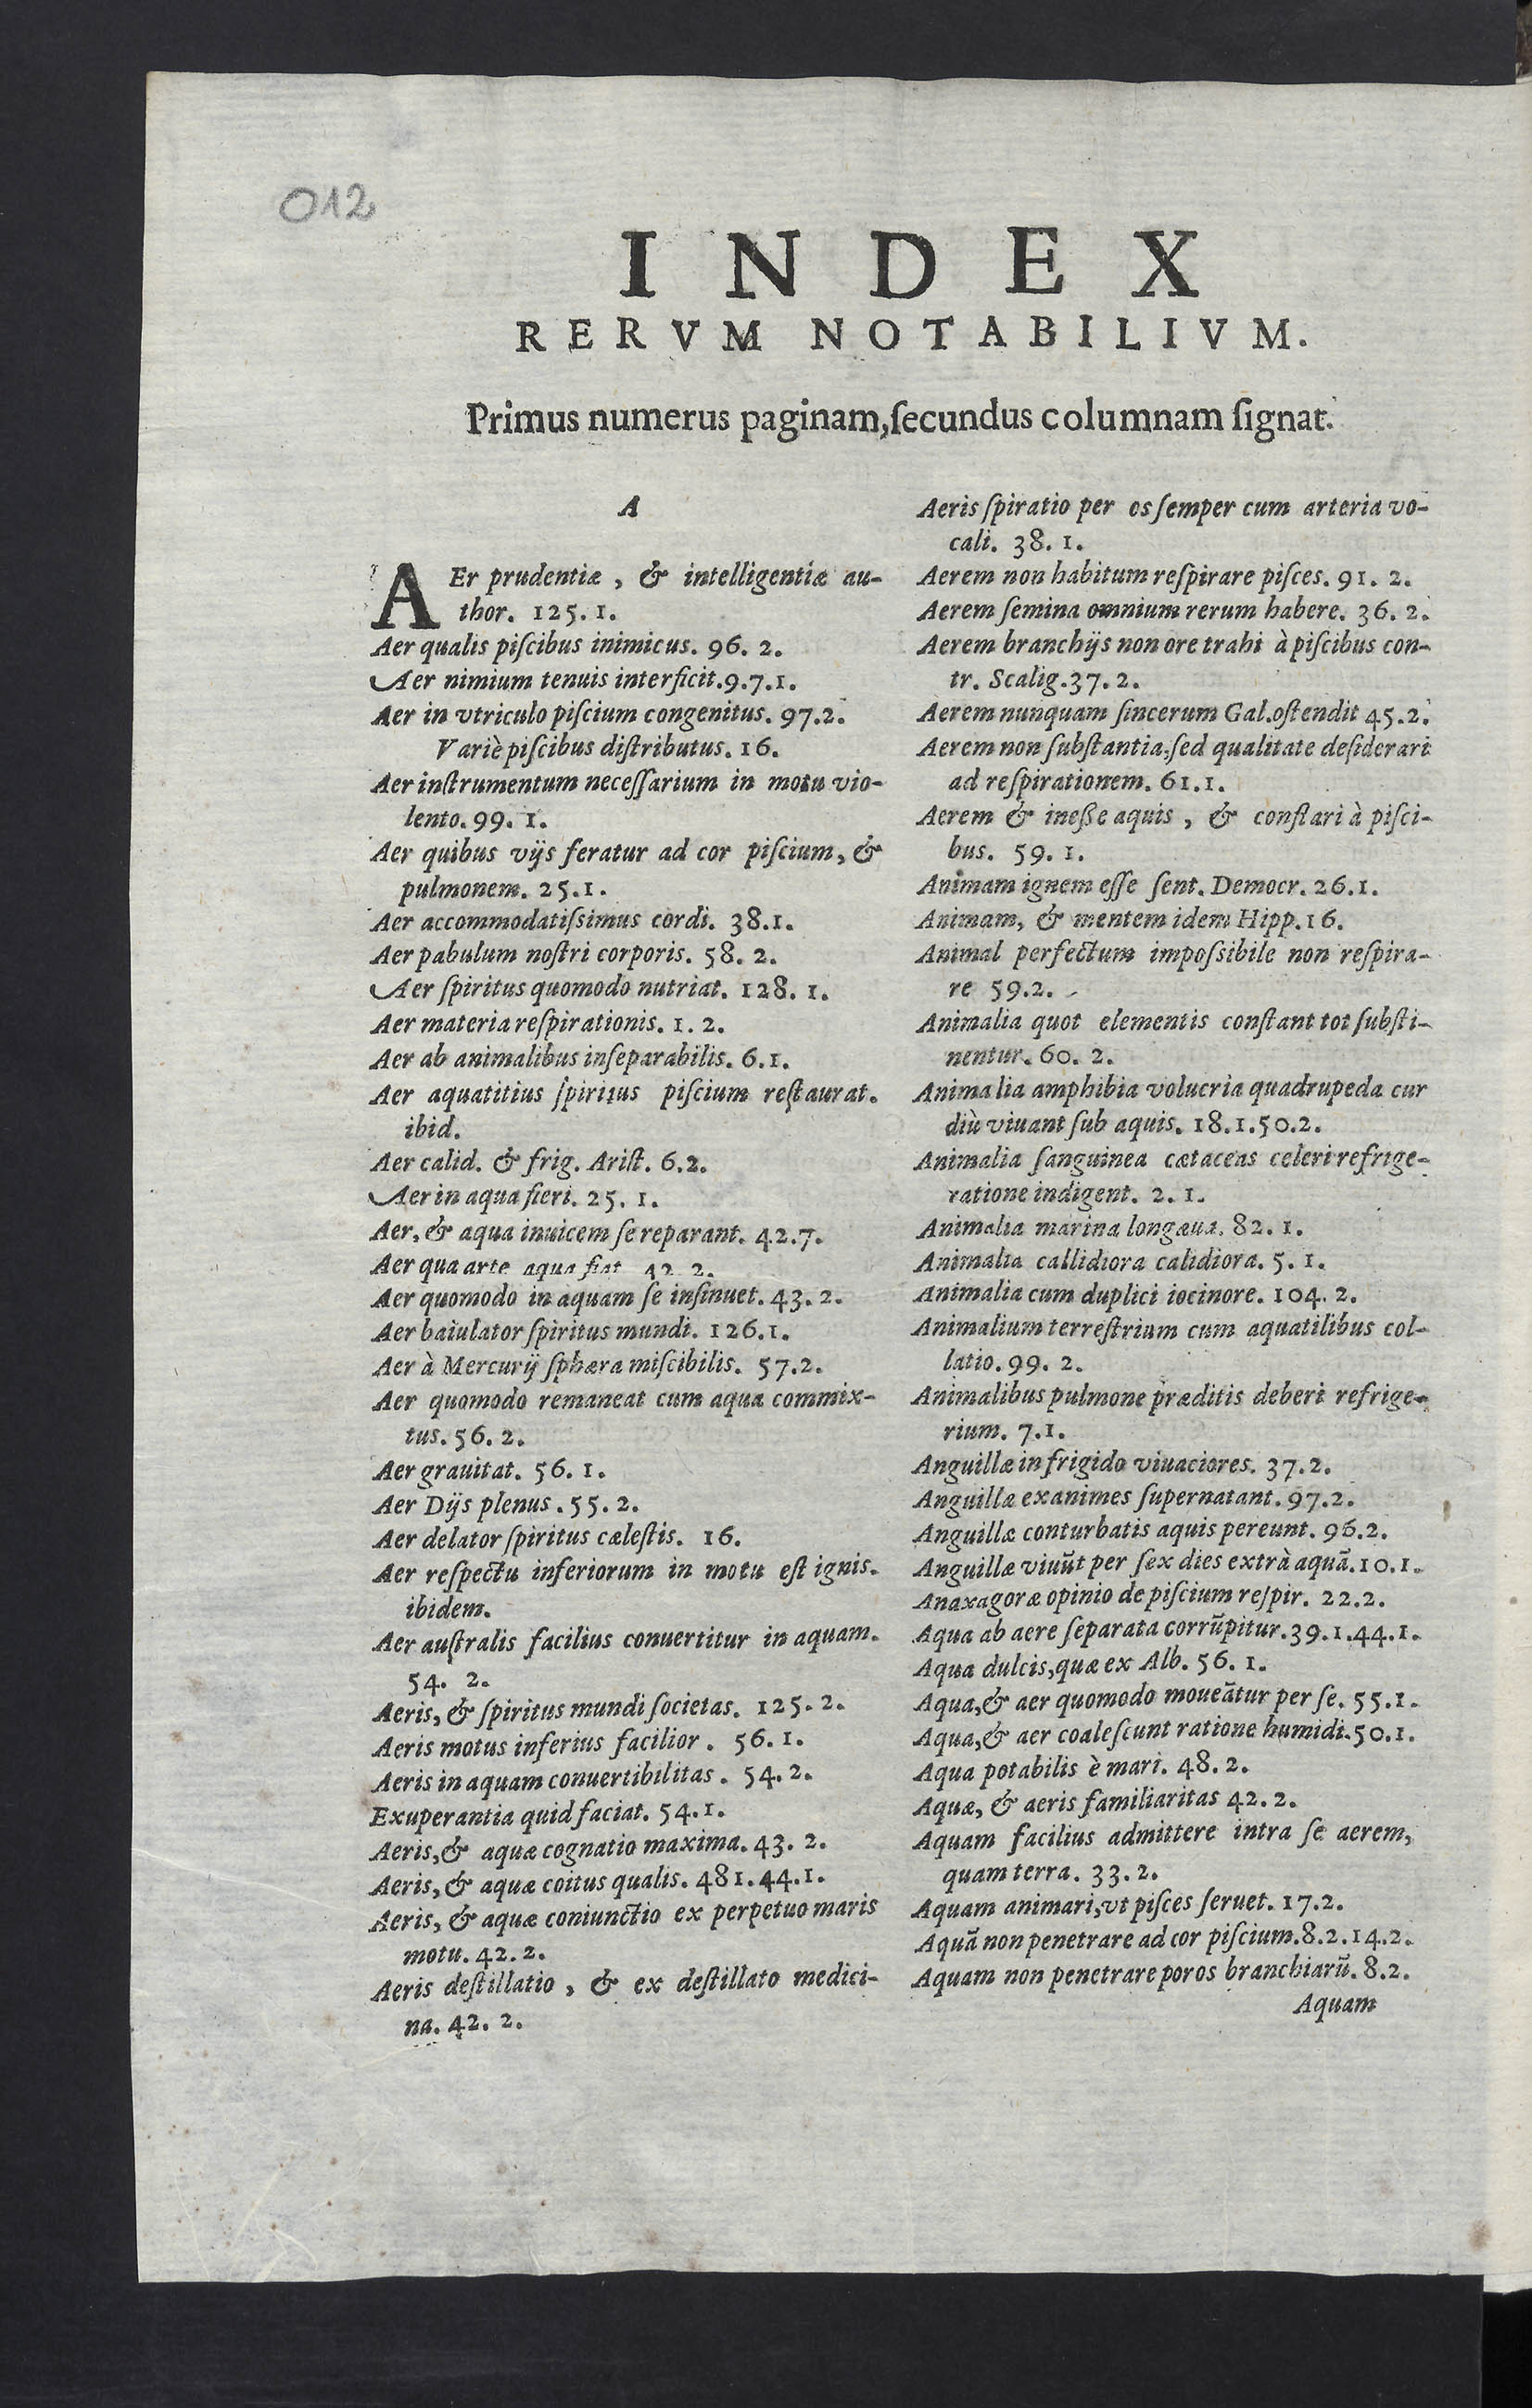 012
INDEX
RERVM NOTABILIVM.
Primus numerus paginam, ſecundus columnam ſignat.
A
AEr prudentiæ, & intelligentiæ au-
thor. 125. 1.
Aer qualis piſcibus inimicus. 96. 2.
Aer nimium tenuis interficit. 9.7.1.
Aer in vtriculo piſcium congenitus. 97.2.
Variè piſcibus diſtributus. 16.
Aer inſtrumentum neceſſarium in motu vio-
lento. 99. 1.
Aer quibus vijs feratur ad cor piſcium, &
pulmonem. 25.1.
Aer accommodatiſsimus cordi. 38.1.
Aer pabulum noſtri corporis. 58. 2.
Aer ſpiritus quomodo nutriat. 128. 1.
Aer materia reſpirationis. 1. 2.
Aer ab animalibus inſeparabilis. 6.1.
Aer aquatitius ſpiritus piſcium reſtaurat.
ibid.
Aer calid. & frig. Ariſt. 6.2.
Aer in aqua fieri. 25. 1.
Aer, & aqua inuicem ſe reparant. 42.7.
Aer qua arte aqua fiat 42 2.
Aer quomodo in aquam ſe inſinuet. 43. 2.
Aer baiulator ſpiritus mundi. 126.1.
Aer à Mercurij ſphæra miſcibilis. 57.2.
Aer quomodo remaneat cum aqua commix-
tus. 56. 2.
Aer grauitat. 56. 1.
Aer Dijs plenus. 55. 2.
Aer delator ſpiritus cæleſtis. 16.
Aer reſpectu inferiorum in motu eſt ignis.
ibidem.
Aer auſtralis facilius conuertitur in aquam.
54. 2.
Aeris, & ſpiritus mundi ſocietas. 125. 2.
Aeris motus inferius facilior. 56. 1.
Aeris in aquam conuertibilitas. 54. 2.
Exuperantia quid faciat. 54.1.
Aeris, & aquæ cognatio maxima. 43. 2.
Aeris, & aquæ coitus qualis. 481. 44.1.
Aeris, & aquæ coniunctio ex perpetuo maris
motu. 42. 2.
Aeris deſtillatio, & ex deſtillato medici-
na. 42. 2.
Aeris ſpiratio per os ſemper cum arteria vo-
cali. 38. 1.
Aerem non habitum reſpirare piſces. 91. 2.
Aerem ſemina omnium rerum habere. 36. 2.
Aerem branchijs non ore trahi à piſcibus con-
tr. Scalig. 37. 2.
Aerem nunquam ſincerum Gal. oſtendit 45.2.
Aerem non ſubſtantia, ſed qualitate deſiderari
ad reſpirationem. 61.1.
Aerem & ineſſe aquis, & conflari à piſci-
bus. 59. 1.
Animam ignem eſſe ſent. Democr. 26.1.
Animam, & mentem idem Hipp. 16.
Animal perfectum impoſsibile non reſpira-
re 59.2.
Animalia quot elementis conſtant tot ſubſti-
nentur. 60. 2.
Animalia amphibia volucria quadrupeda cur
diù viuant ſub aquis. 18.1.50.2.
Animalia ſanguinea cætaceas celeri refrige-
ratione indigent. 2. 1.
Animalia marina longæua. 82. 1.
Animalia callidiora calidiora. 5. 1.
Animalia cum duplici iocinore. 104. 2.
Animalium terreſtrium cum aquatilibus col-
latio. 99. 2.
Animalibus pulmone præditis deberi refrige-
rium. 7.1.
Anguillæ in frigido viuaciores. 37.2.
Anguillæ exanimes ſupernatant. 97.2.
Anguillæ conturbatis aquis pereunt. 96.2.
Anguillæ viuũt per ſex dies extrà aquã. 10.1.
Anaxagoræ opinio de piſcium reſpir. 22.2.
Aqua ab aere ſeparata corrũpitur. 39.1.44.1.
Aqua dulcis, quæ ex Alb. 56. 1.
Aqua, & aer quomodo moueãtur per ſe. 55.1.
Aqua, & aer coaleſcunt ratione humidi. 50.1.
Aqua potabilis è mari. 48. 2.
Aquæ, & aeris familiaritas 42. 2.
Aquam facilius admittere intra ſe aerem,
quam terra. 33. 2.
Aquam animari, vt piſces ſeruet. 17.2.
Aquã non penetrare ad cor piſcium. 8.2.14.2.
Aquam non penetrare poros branchiarũ. 8.2.
Aquam